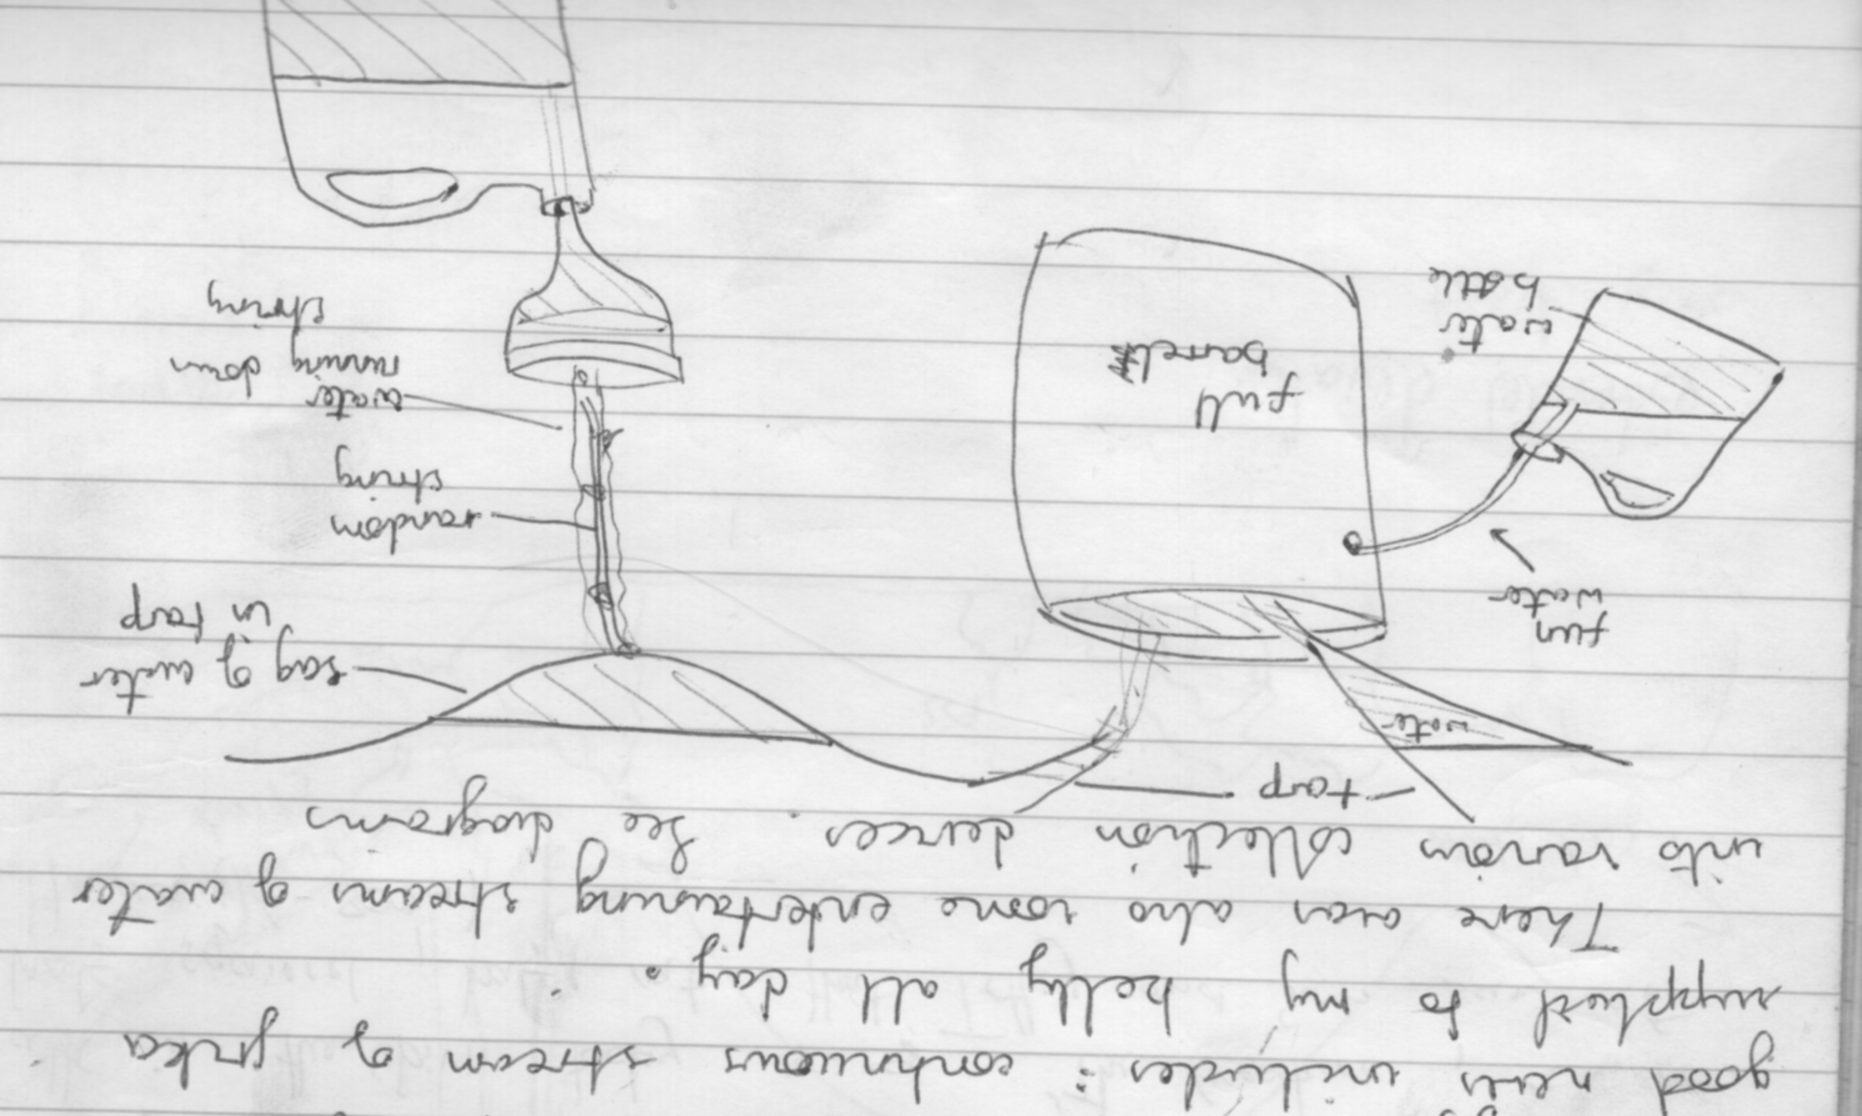 good news includes: continuous stream of
supplied to my belly all day.
There was also some entertaining streams of water
into various collection devices. See diagrams
tarp
water
fun
water
full
barrel
water
bottle
sag of water
in tarp
random
string
water
running down
string